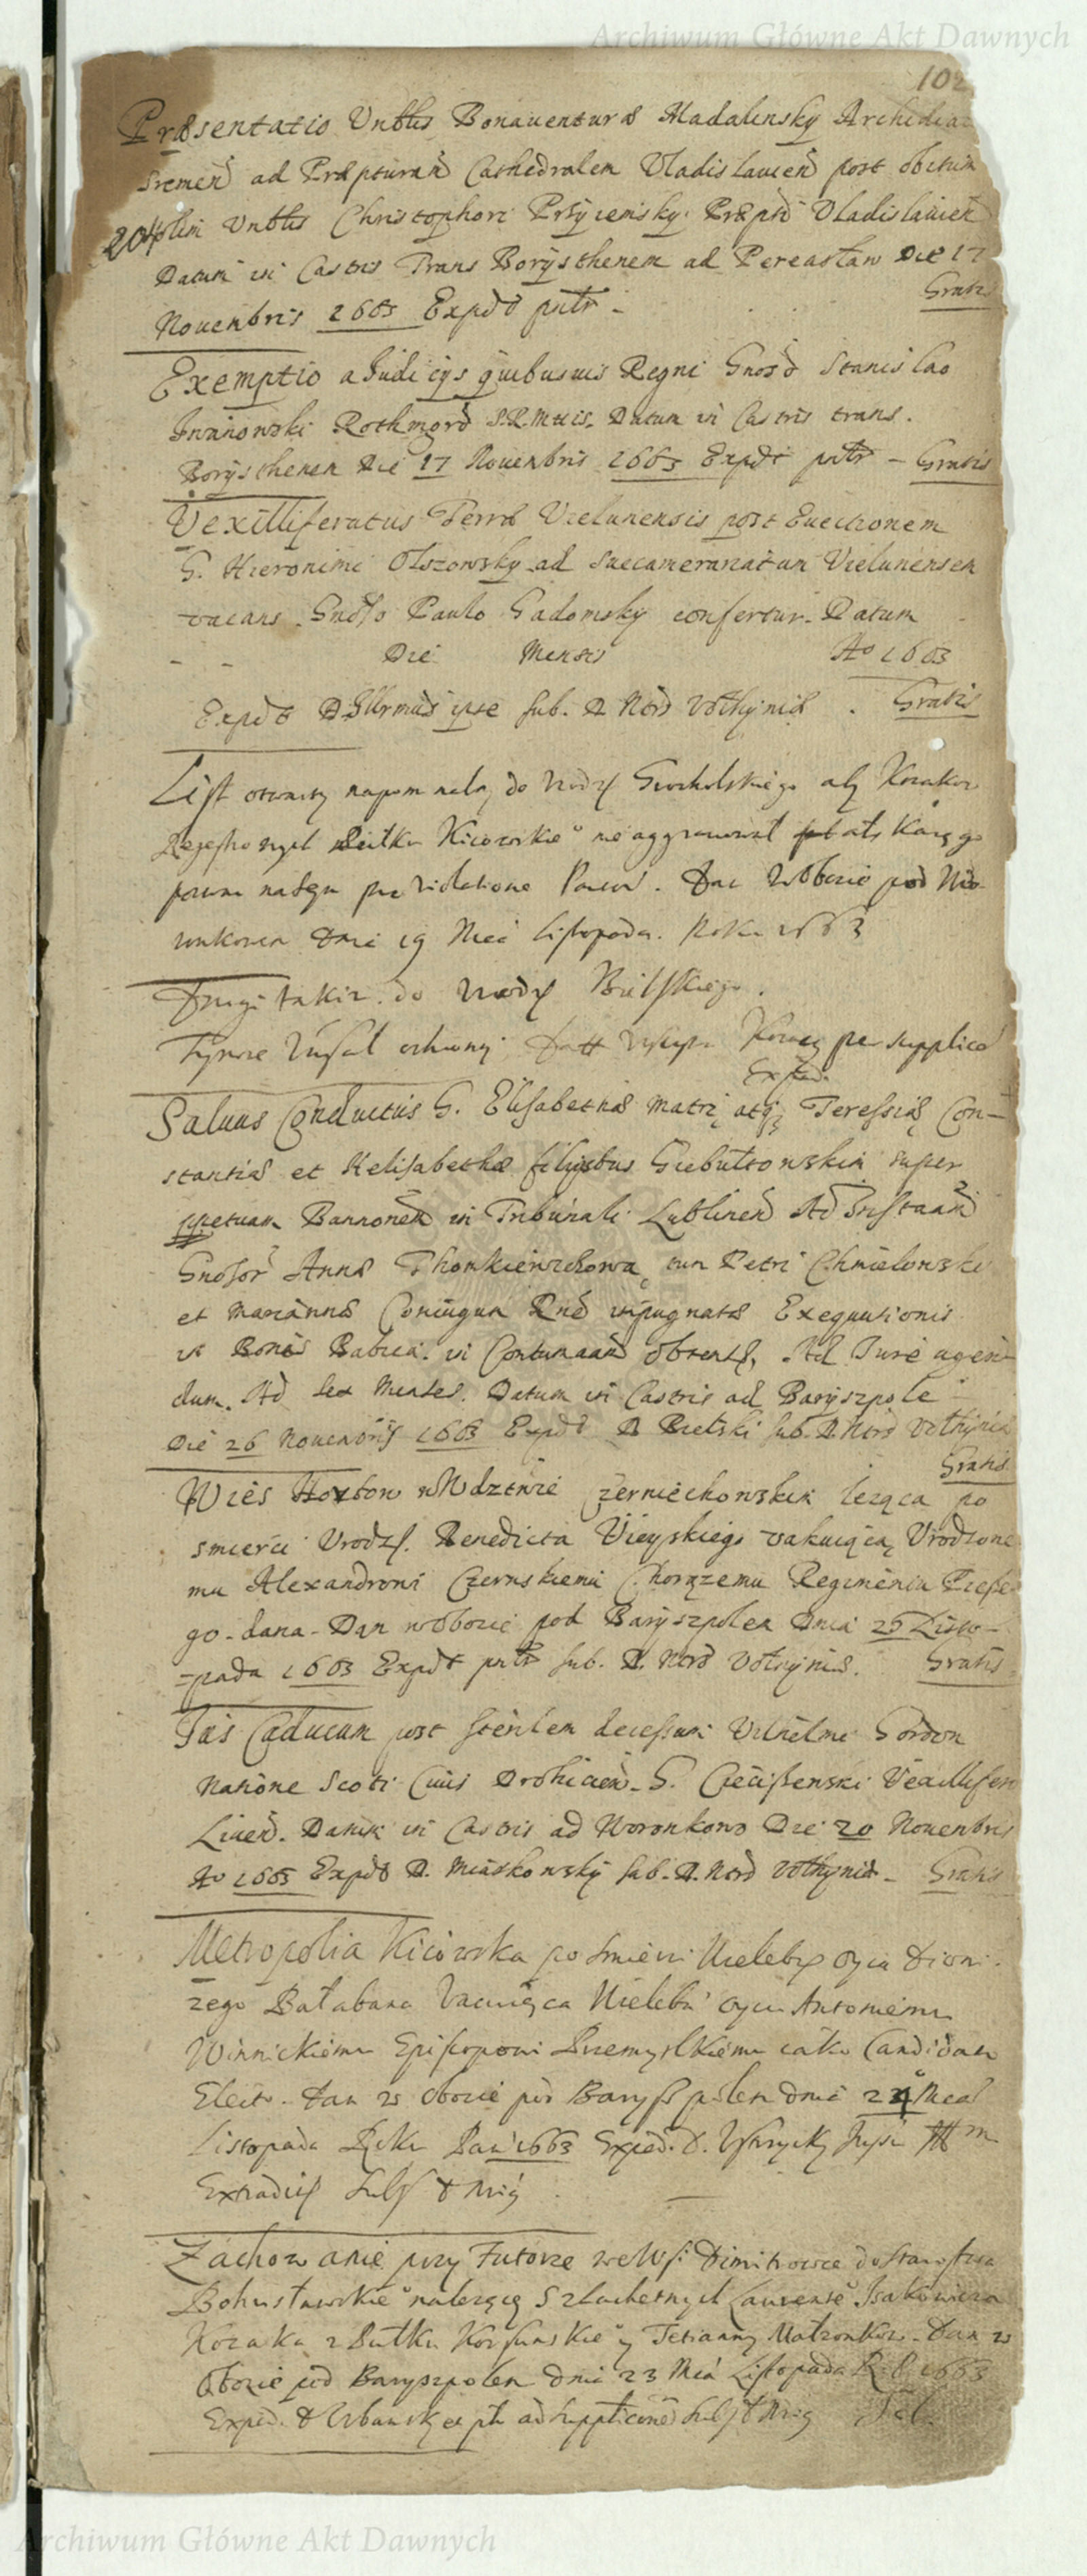 Archiwum Główne Akt Dawnych
102
Præsentatio Vnblis Bonauenturæ Madalinsky Archidiac
Sremen ad Præpturam Cathedralem Vladislauien post obitum
204 olim Vnblis Christophori Præpti Vladislauien
Datum in Castris Trans Borysthenem ad Pereaslaw Die 17
Gratis
Nouembris 1663 Expdt pntr
Exemptio a Judicijs quibusuis Regni Gnoso Stanislao
Iwanowski Rothmgro S.R.Mttis. Datum in Castris trans.
Borysthenem Die 17 Nouembris 1663 Expdt pntr - Gratis
Vexilliferatus Terræ Vielunensis post Euectionem
G. Hieronimi Olszowsky ad Succamerariatum Vielunensem
vacans Gnoso Paulo Gadomsky confertur. Datum
- - Die Mensis Ao 1663
Expdt ipse sub. D. Nerd Vołhyniæ . Gratis
List otwarty napominalny do Vrodz Grocholskiego aby Kozakow
Regestrowych Kiiowskie° nie aggrauował
Dan w Obozie pod Wo-
ronkowem dnia 19 Mca Listopada. Roku 1663
Drugi takiz. do Vrodz Bielskiego.
Tymze per supplicd
Exped.
Saluus Conductus G. Elisabethæ matri atq Teressiæ Con-
stantiæ et Helisabethæ filijsbus Giebułtowskim super
Bannonem in Tribunali Lublinen Ad Instaan
Gnosor Annæ Thomkiewiczowa, tum Petri Chmielowski
et Mariannæ Coniugum Rne impugnatæ Exequutionis
in Bonis Babica in Contumaam obtents, Ad Jure agen-
dum. Ad sex Menses. Datum in Castris ad Baryszpole
Die 26 Nouembris 1663 Expdt D Bielski sub. D. Nerd Vołhyniæ
Gratis
Wies Horbow w Wdztwie Czerniechowskim leząca po
smierci Vrodz. Benedicta vakuiącą Vrodzone
mu Alexandrowi Czernskiemu Chorązemu Regimentu Piesze
go - dana - Dan w obozie pod Baryszpolem Dnia 25 Listo-
-pada 1663 Expdt pntr sub. D. Nerd Vołhyniæ. Gratis
Jus Caducum post sterilem decessum Vilhelmi Gordon
Natione Scoti Ciuis Drohicien. G. Ciecißenski Vexillifero
Liuen. Datum in Castris ad Woronkowo Die 20 Nouembris
Ao 1663 Expdt D. Miaskowsky sub. D. Nerd Vołhyniæ - Gratis
Metropolia Kiiowska po smierci Wieleb oyca Dioni-
zego Bałabana Vacuiąca Wieleb oycu Antoniemu
Winnickiemu Episcopowi Przemyslkiemu iako Candidato
Electo. Dan w Obozie pod Baryßpolem dnia 24 Mca
Listopada Roku Pan 1663 Exped. D.
Extradidit
Zachowanie przy Futorze we Wsi Dimitrowce do Starostwa
Bohusławskie° nalezącey Szlachetnych Laurense° Isakowicza
Kozaka z Pułku Korsunskie° y Tetianny Małzonkow. Dan w
Obozie pod Baryszpolem dnia 23 Mca Listopada R. P. 1663
Exped. D Vrbansky ad supplicaned
Archiwum Główne Akt Dawnych